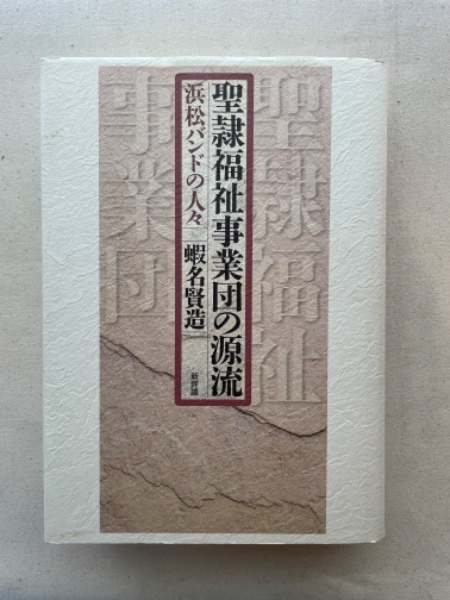 聖隷福祉事業団の源流
浜松バンドの人々
蝦名賢造
新評論
聖隷福祉
事業団